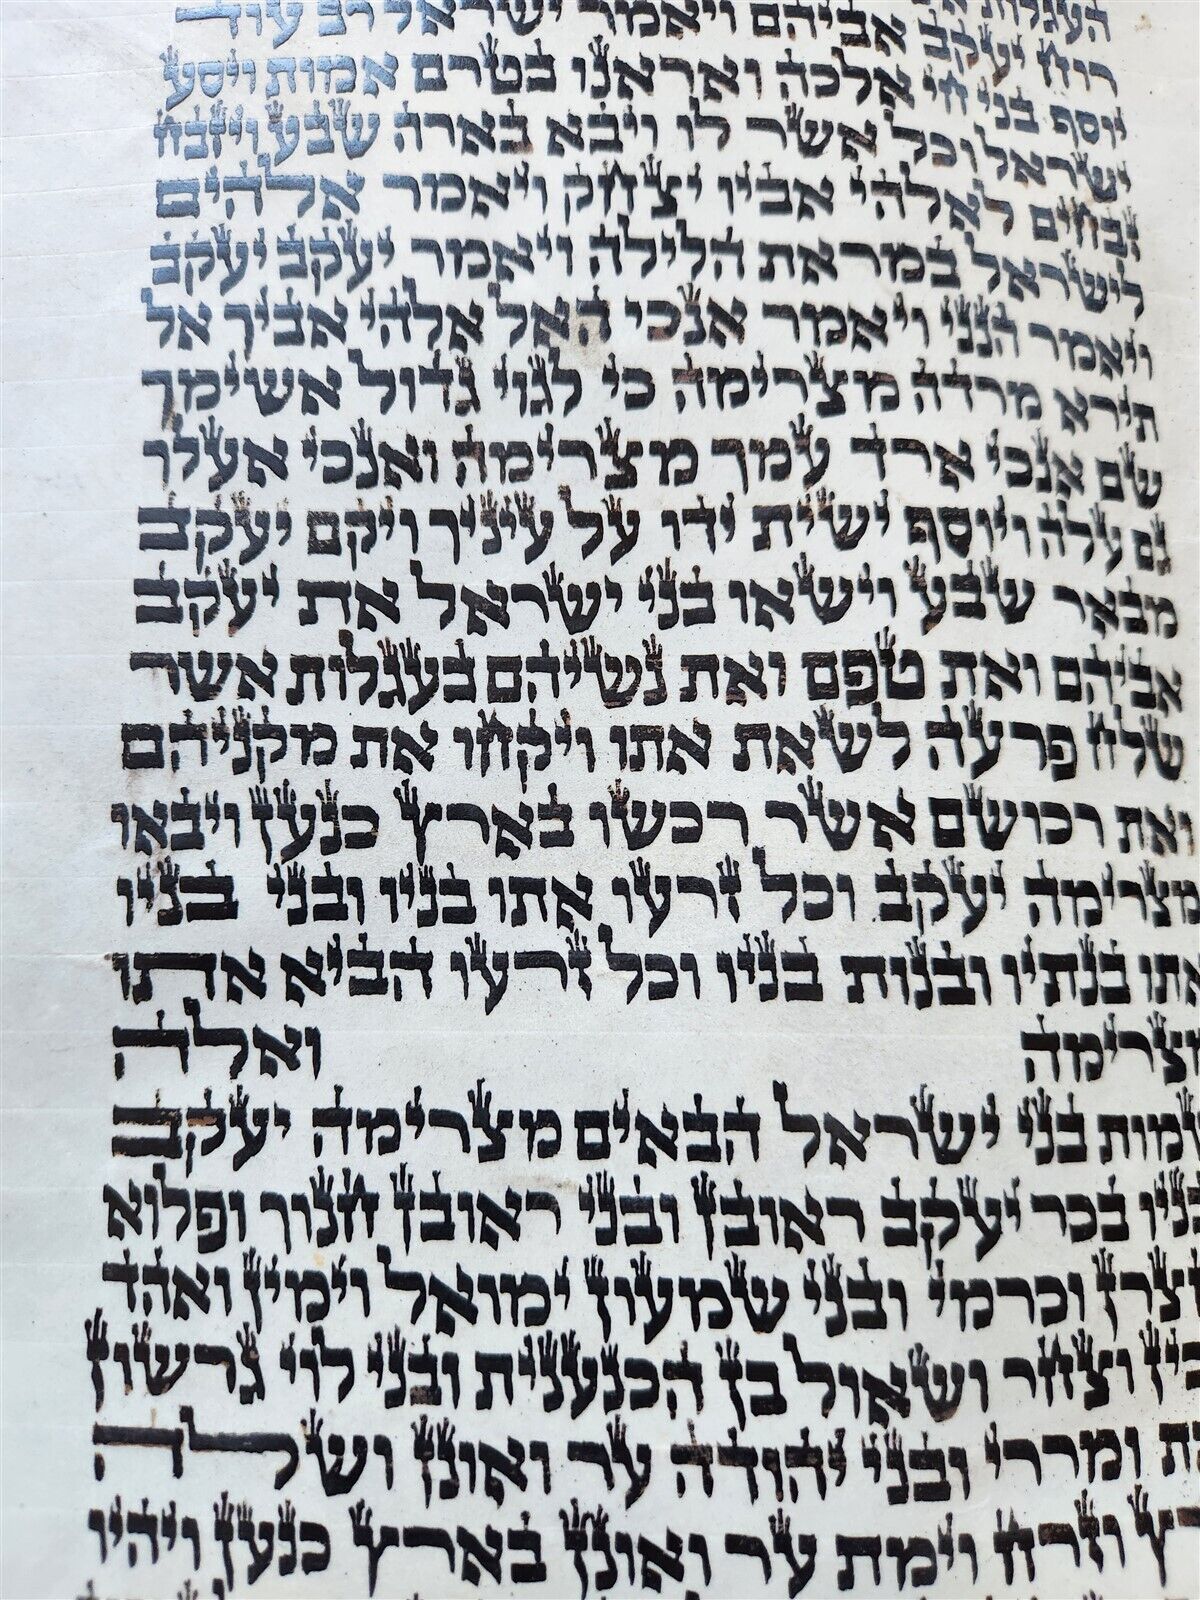 העגלות
רוח יעקב אביהם ויאמר ישראל רב עוד
יוסף בני חי אלכה ואראנו בטרם אמות ויסע
ישראל וכל אשר לו ויבא בארה שבע ויזבח
זבחים לאלהי אביו יצחק ויאמר אלהים
לישראל במראת הלילה ויאמר יעקב יעקב
ויאמר הנני ויאמר אנכי האל אלהי אביך אל
תירא מרדה מצרימה כי לגוי גדול אשימך
שם אנכי ארד עמך מצרימה ואנכי אעלך
גם עלה ויוסף ישית ידו על עיניך ויקם יעקב
מבאר שבע וישאו בני ישראל את יעקב
אביהם ואת טפם ואת נשיהם בעגלות אשר
שלח פרעה לשאת אתו ויקחו את מקניהם
ואת רכושם אשר רכשו בארץ כנען ויבאו
מצרימה יעקב וכל זרעו אתו בניו ובני בניו
אתו בנתיו ובנות בניו וכל זרעו הביא אתו
מצרימה ואלה
שמות בני ישראל הבאים מצרימה יעקב
ובניו בכר יעקב ראובן ובני ראובן חנוך ופלוא
וחצרן וכרמי ובני שמעון ימואל וימין ואהד
ויכין וצחר ושאול בן הכנענית ובני לוי גרשון
קהת ומררי ובני יהודה ער ואונן ושלה
ופרץ וזרח וימת ער ואונן בארץ כנען ויהיו